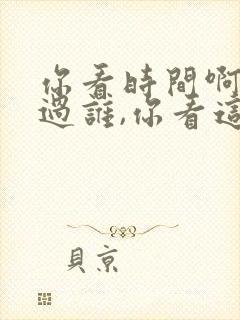 你看時間啊
過誰,你看這
貝京